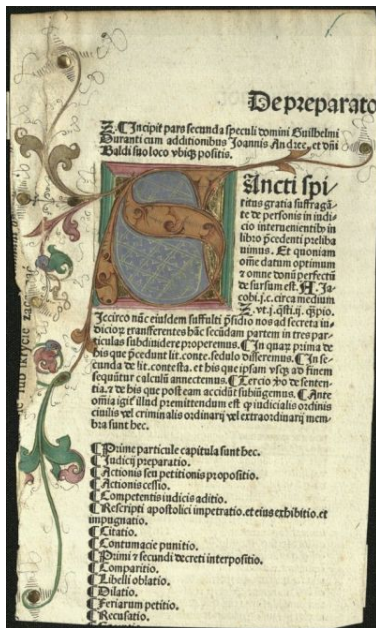 De preparato
Incipit pars secunda speculi domini Guilhelmi
Duranti cum additionibus Joannis Andree, et dñi
Baldi suo loco vbiqȝ positis.
Sancti spi⸗
ritus gratia suffragā⸗
te de personis in iudi⸗
cio interuenientibꝰ in
libro p̄cedenti preliba
uimus. Et quoniam
om̄e datum optimum
⁊ omne donū perfectū
de sursum est. Ja⸗
cobi.j.c.circa medium
Iccirco nūc eiusdem suffulti p̄sidio nos ad secreta in⸗
dicioꝝ transferentes hāc secūdam partem in tres par⸗
ticulas subdiuidere properemus. ¶ In quaꝝ prima de
his que p̄cedunt lit. conte. sedulo disseremus. ¶ In se⸗
cunda de lit. contesta. et his que ipsam vsqȝ ad finem
sequitur calculū annectemus. ¶ Tercio ꝟo de senten⸗
tia. ⁊ de his que post eam accidūt subiūgemus. ¶ Ante
om̄ia igit᷑ illud premittendum est ꝙ iudicialis ordinis
ciuilis vel criminalis ordinarij vel extraordinarij mem⸗
bra sunt hec.
¶ Prime particule capitula sunt hec.
¶ Iudicij preparatio.
¶ Actionis seu petitionis propositio.
¶ Actionis cessio.
¶ Competentis iudicis aditio.
¶ Rescripti apostolici impetratio. et eius exhibitio. et
impugnatio.
¶ Citatio.
¶ Contumacie punitio.
¶ Primi ⁊ secundi decreti interpositio.
¶ Comparitio.
¶ Libelli oblatio.
¶ Dilatio.
¶ Feriarum petitio.
¶ Recusatio.